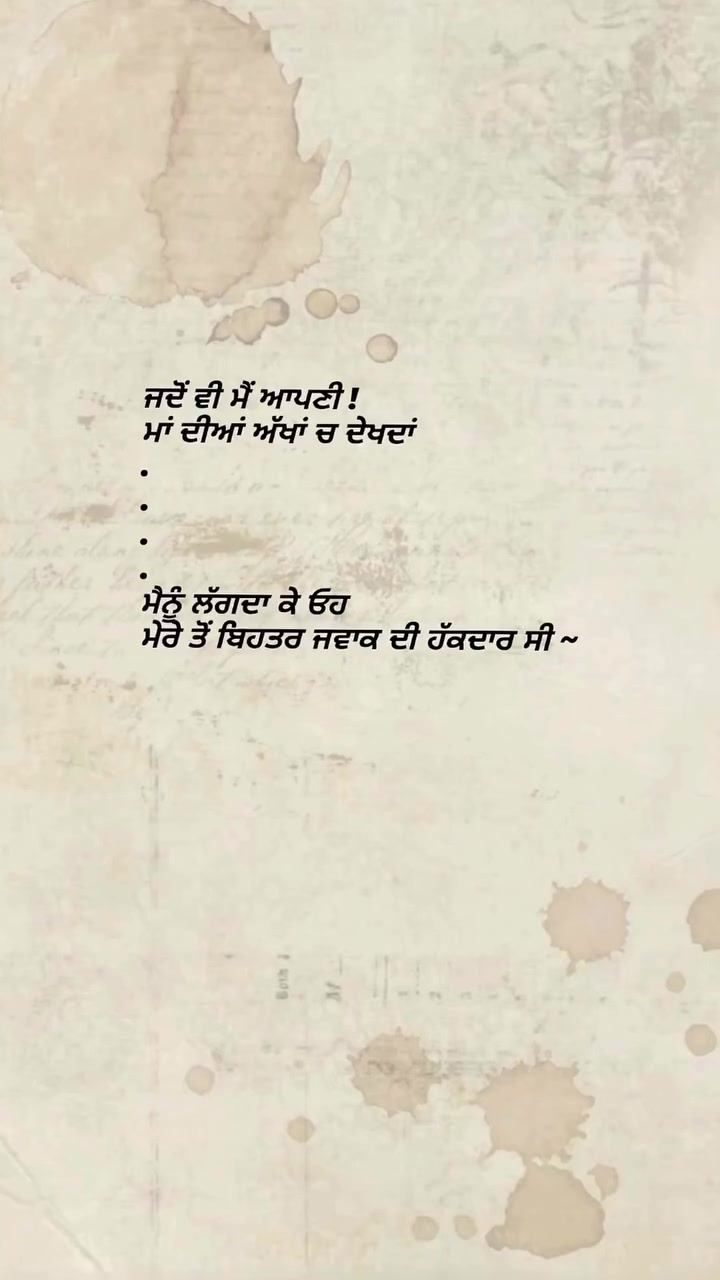 ਜਦੋਂ ਵੀ ਮੈਂ ਆਪਣੀ !
ਮਾਂ ਦੀਆਂ ਅੱਖਾਂ ਚ ਦੇਖਦਾਂ
.
.
.
.
ਮੈਨੂੰ ਲੱਗਦਾ ਕੇ ਓਹ
ਮੇਰੇ ਤੋਂ ਬਿਹਤਰ ਜਵਾਕ ਦੀ ਹੱਕਦਾਰ ਸੀ ~